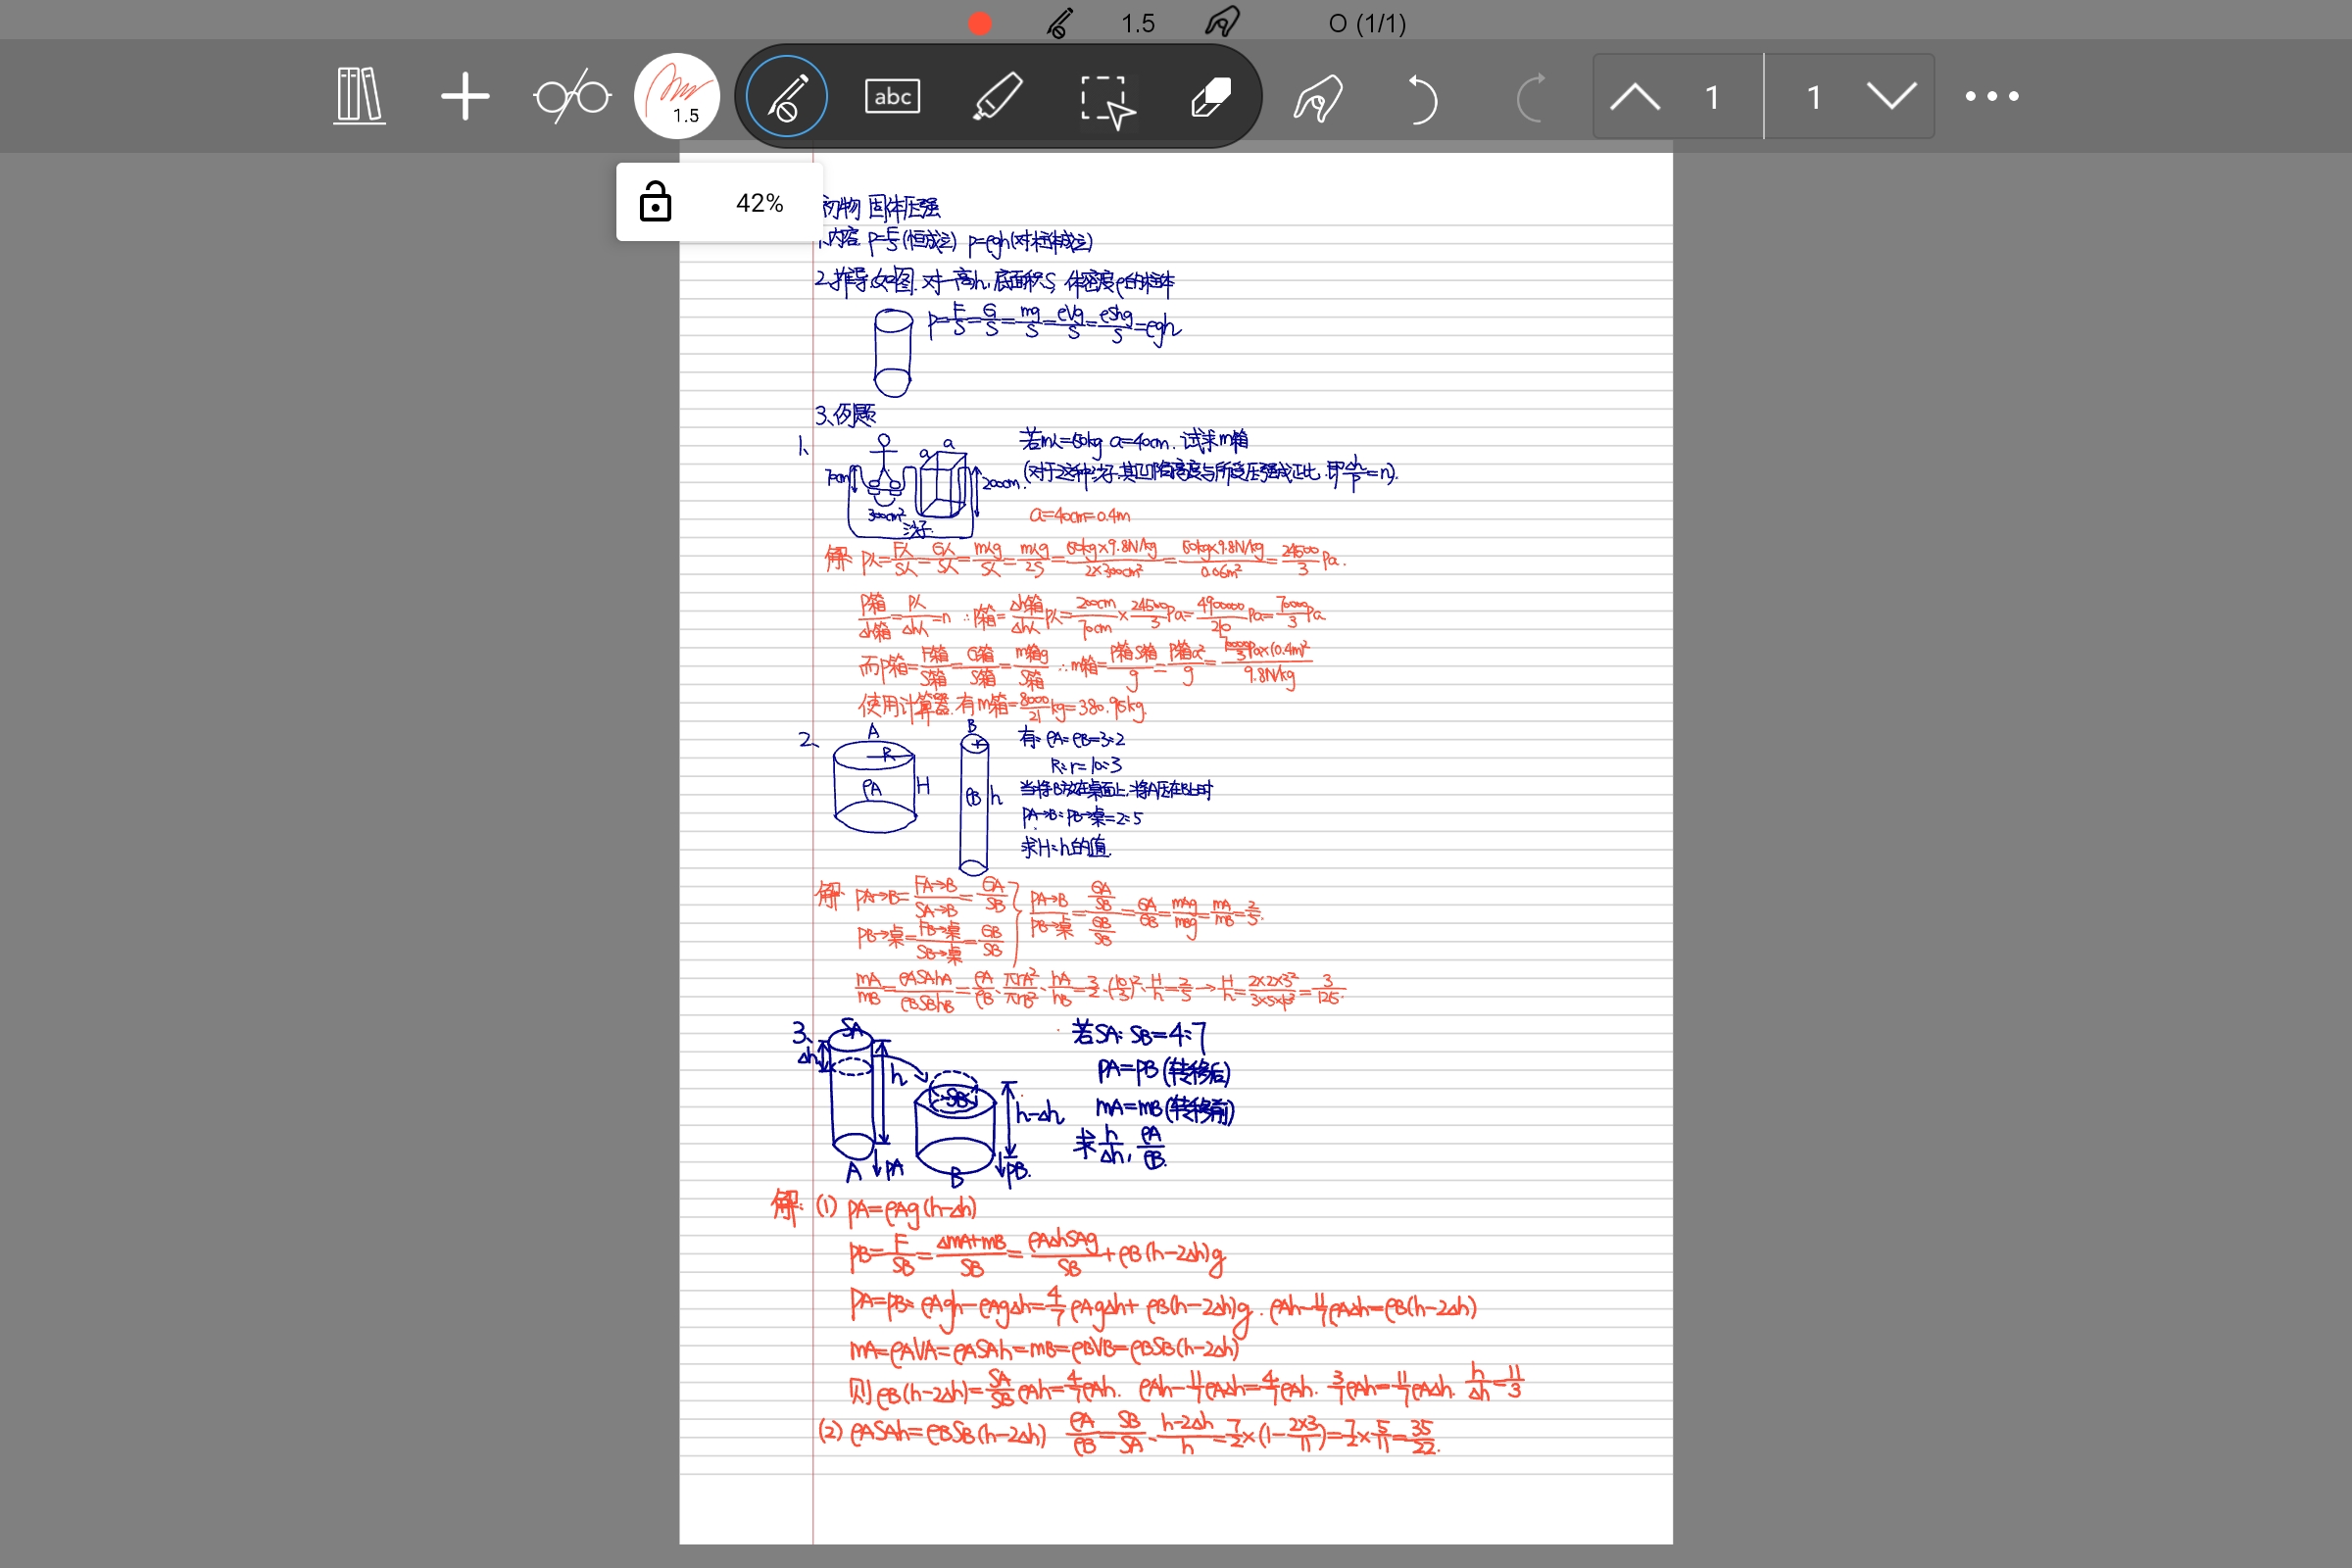 1.5 O (1/1)
1.5 abc 1 1
42%
初物 固体压强
1.内容 p=F/S(恒成立) p=ρgh(对柱体成立)
2.推导.如图.对一高h,底面积S,体密度ρ的柱体
p=F/S=G/S=mg/S=ρVg/S=ρShg/S=ρgh
3.例题
1、
a
a
70cm
200cm
300cm²
沙子
若m人=60kg a=40cm.试求m箱
(对于这种沙子,其凹陷高度与所受压强成正比,即Δh/p=n).
a=40cm=0.4m
解: p人=F人/S人=G人/S人=m人g/S人=m人g/2S=60kg×9.8N/kg/2×300cm²=60kg×9.8N/kg/0.06m²=24500/3Pa.
p箱/Δh箱=p人/Δh人=n ∴p箱=Δh箱/Δh人 p人=200cm/70cm×24500/3Pa=490000/210Pa=70000/3Pa
而p箱=F箱/S箱=G箱/S箱=m箱g/S箱 ∴m箱=p箱S箱/g=p箱a²/g=70000/3Pa×(0.4m)²/9.8N/kg
使用计算器.有m箱=8000/21kg=380.95kg.
2、
A
R
ρA
H
B
r
ρB
h
有: ρA:ρB=3:2
R:r=10:3
当将B放在桌面上,将A压在B上时
pA→B:pB→桌=2:5
求H:h的值.
解: pA→B=FA→B/SA→B=GA/SB
pB→桌=FB→桌/SB→桌=GB/SB
pA→B/pB→桌=GA/SB/GB/SB=GA/GB=mAg/mBg=mA/mB=2/5.
mA/mB=ρASAhA/ρBSBhB=ρA/ρB·πrA²/πrB²·hA/hB=3/2·(10/3)²·H/h=2/5→H/h=2×2×3²/3×5×10²=3/125.
3、
SA
Δh
h
A
pA
SB
h-Δh
B
pB.
若SA:SB=4:7
pA=pB(转移后)
mA=mB(转移前)
求h/Δh,ρA/ρB.
解: (1) pA=ρAg(h-Δh)
pB=F/SB=ΔmA+mB/SB=ρAΔhSAg/SB+ρB(h-2Δh)g
pA=pB: ρAgh-ρAgΔh=4/7ρAgΔh+ρB(h-2Δh)g. ρAh-11/7ρAΔh=ρB(h-2Δh)
mA=ρAVA=ρASAh=mB=ρBVB=ρBSB(h-2Δh)
则ρB(h-2Δh)=SA/SBρAh=4/7ρAh. ρAh-11/7ρAΔh=4/7ρAh. 3/7ρAh=11/7ρAΔh. h/Δh=11/3
(2) ρASAh=ρBSB(h-2Δh) ρA/ρB=SB/SA·h-2Δh/h=7/2×(1-2×3/11)=7/2×5/11=35/22.